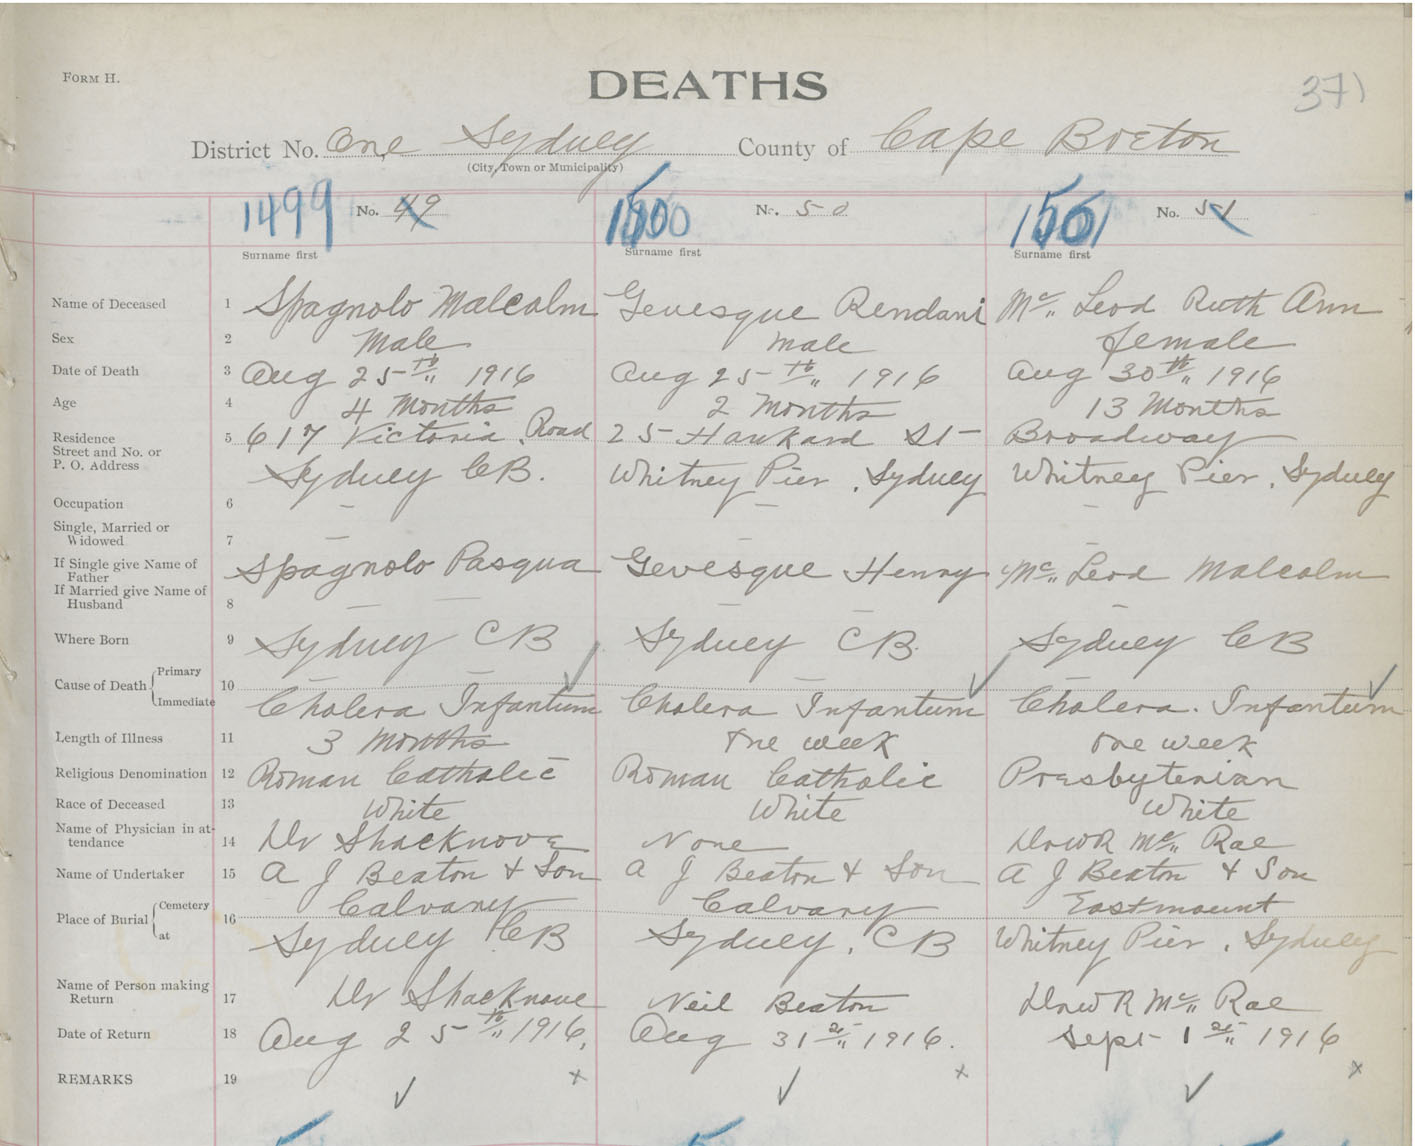 FORM H.
DEATHS
371
District No. One Sydney County of Cape Breton
(City, Town or Municipality)
1499 No. 49 1500 No. 50 1501 No. 51
Surname first Surname first Surname first
Name of Deceased 1 Spagnolo Malcolm Gevesque Rendani Mc,, Leod Ruth Ann
Sex 2 Male Male female
Date of Death 3 Aug 25th,, 1916 Aug 25th,, 1916 Aug 30th,, 1916
Age 4 4 Months 2 Months 13 Months
Residence 5 617 Victoria Road 25 Hankard St Broadway
Street and No. or
P. O. Address Sydney CB. Whitney Pier, Sydney Whitney Pier, Sydney
Occupation 6 – – –
Single, Married or
Widowed 7 – – –
If Single give Name of
Father Spagnolo Pasqua Gevesque Henry Mc,, Leod Malcolm
If Married give Name of
Husband 8 – – – –
Where Born 9 Sydney CB Sydney CB. Sydney CB
Cause of Death Primary 10 – – –
Immediate Cholera Infantum Cholera Infantum Cholera. Infantum
Length of Illness 11 3 Months One week One week
Religious Denomination 12 Roman Catholic Roman Catholic Presbyterian
Race of Deceased 13 White White White
Name of Physician in at-
tendance 14 Dr Shacknove None Dr W R Mc,, Rae
Name of Undertaker 15 A J Beaton & Son A J Beaton & Son A J Beaton & Son
Place of Burial Cemetery 16 Calvary Calvary Eastmount
at Sydney CB Sydney, CB Whitney Pier, Sydney
Name of Person making
Return 17 Dr Shacknove Neil Beaton Dr W R Mc,, Rae
Date of Return 18 Aug 25th,, 1916, Aug 31st,, 1916. Sept 1st,, 1916
REMARKS 19 ✓ x ✓ x ✓ x